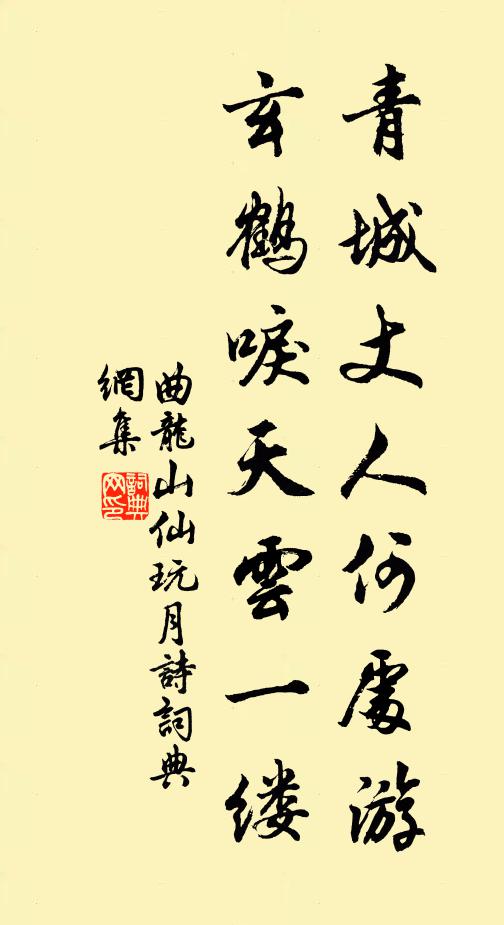 青城丈人何處游
玄鶴唳天雲一缕
曲龍山仙玩月詩詞典
網集
詞典
网印